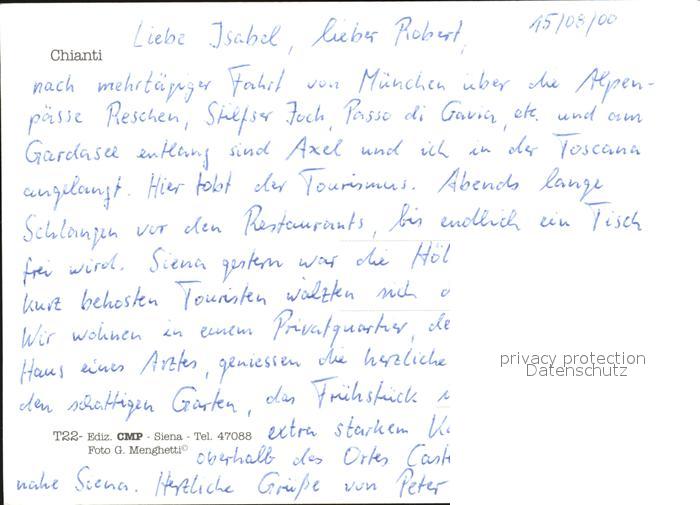 15/08/00
Liebe Isabel, lieber Robert,
Chianti
nach mehrtägiger Fahrt von München über die Alpen-
pässe Reschen, Stilfser Joch, Passo di Gavia, etc. und am
Gardasee entlang sind Axel und ich in der Toscana
angelangt. Hier tobt der Tourismus. Abends lange
Schlangen vor den Restaurants, bis endlich ein Tisch
frei wird. Siena gestern war die Höl
kurz behosten Touristen wälzten sich d
Wir wohnen in einem Privatquartier, de
Haus eines Arztes, geniessen die herzliche
den schattigen Garten, das Frühstück
privacy protection
Datenschutz
T22- Ediz. CMP - Siena - Tel. 47088 extra starkem
Foto G. Menghetti© oberhalb des Ortes Caste
nahe Siena. Herzliche Grüße von Peter